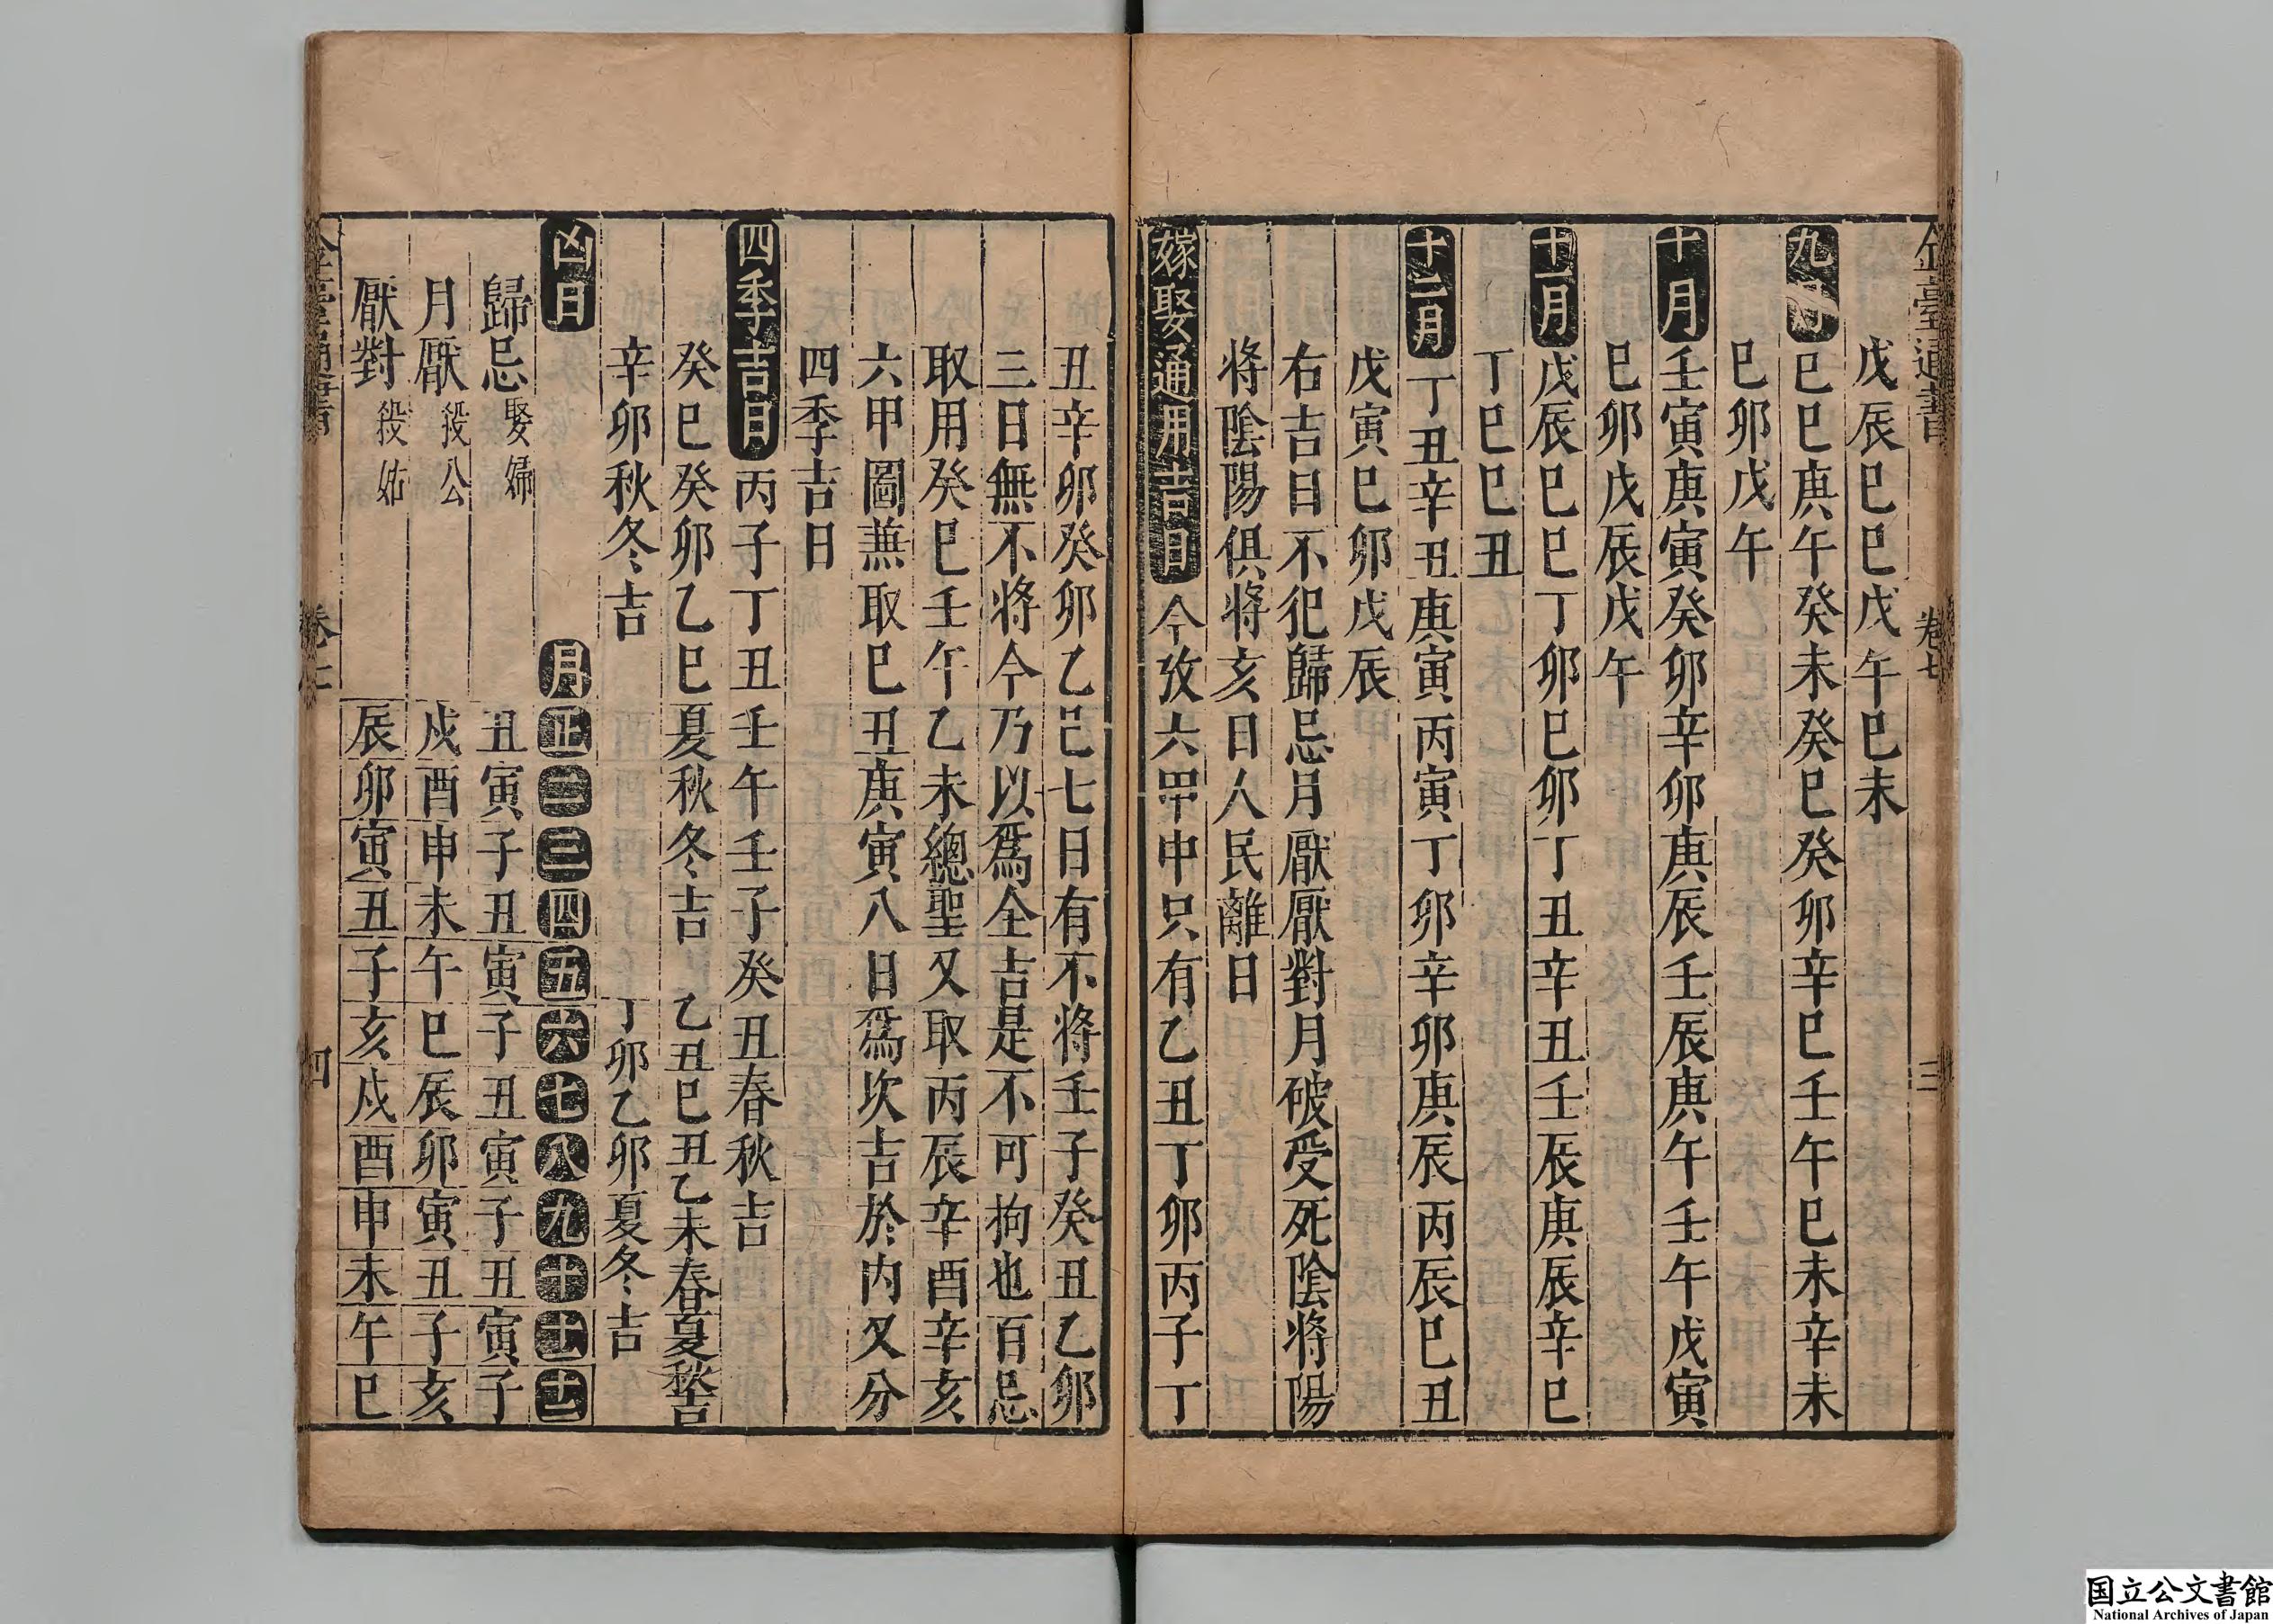 金臺通書 卷七 三
戊辰己巳戊午己未
九月 己巳庚午癸未癸巳癸卯辛巳壬午己未辛未
己卯戊午
十月 壬寅庚寅癸卯辛卯庚辰壬辰庚午壬午戊寅
己卯戊辰戊午
十一月 戊辰己巳丁卯己卯丁丑辛丑壬辰庚辰辛巳
丁巳己丑
十二月 丁丑辛丑庚寅丙寅丁卯辛卯庚辰丙辰己丑
戊寅己卯戊辰
右吉日不犯歸忌月厭厭對月破受死陰将陽
将陰陽俱将亥日人民離日
嫁娶通用吉日 今攷六甲中只有乙丑丁卯丙子丁
丑辛卯癸卯乙巳七日有不将壬子癸丑乙卯
三日無不将今乃以爲全吉是不可拘也百忌
取用癸巳壬午乙未總聖又取丙辰辛酉辛亥
六甲圖兼取己丑庚寅八日爲坎吉於内又分
四季吉日
四季吉日 丙子丁丑壬午壬子癸丑春秋吉
癸巳癸卯乙巳夏秋冬吉 乙丑己丑乙未春夏秋吉
辛卯秋冬吉 丁卯乙卯夏冬吉
凶日 月正二三四五六七八九十十一十二
歸忌 娶婦 丑寅子丑寅子丑寅子丑寅子
月厭 殺公 戌酉申未午巳辰卯寅丑子亥
厭對 殺姑 辰卯寅丑子亥戌酉申未午巳
卷七 四
国立公文書館
National Archives of Japan